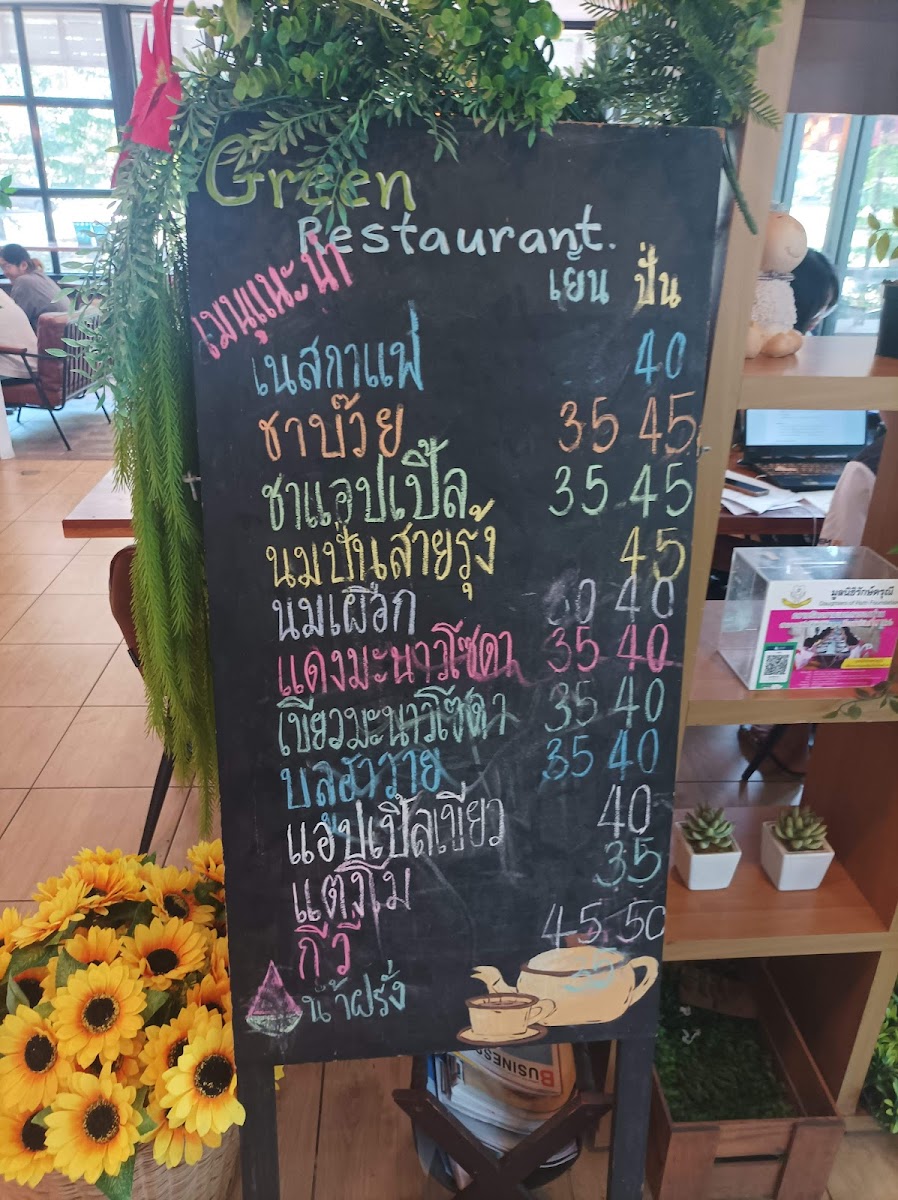 Green
Restaurant.
เมนูแนะนำ
เย็น ปั่น
เนสกาแฟ 40
ชาบ๊วย 35 45
ชาแอปเปิ้ล 35 45
นมปั่นสายรุ้ง 45
นมเผือก 40
แดงมะนาวโซดา 35 40
เขียวมะนาวโซดา 35 40
บลูฮาวาย 35 40
แอปเปิ้ลเขียว 40
แตงโม 35
กีวี 45 50
น้ำฝรั่ง
มูลนิธิรักษ์ดรุณี
Daughters of Ruth Foundation
BUSINESS